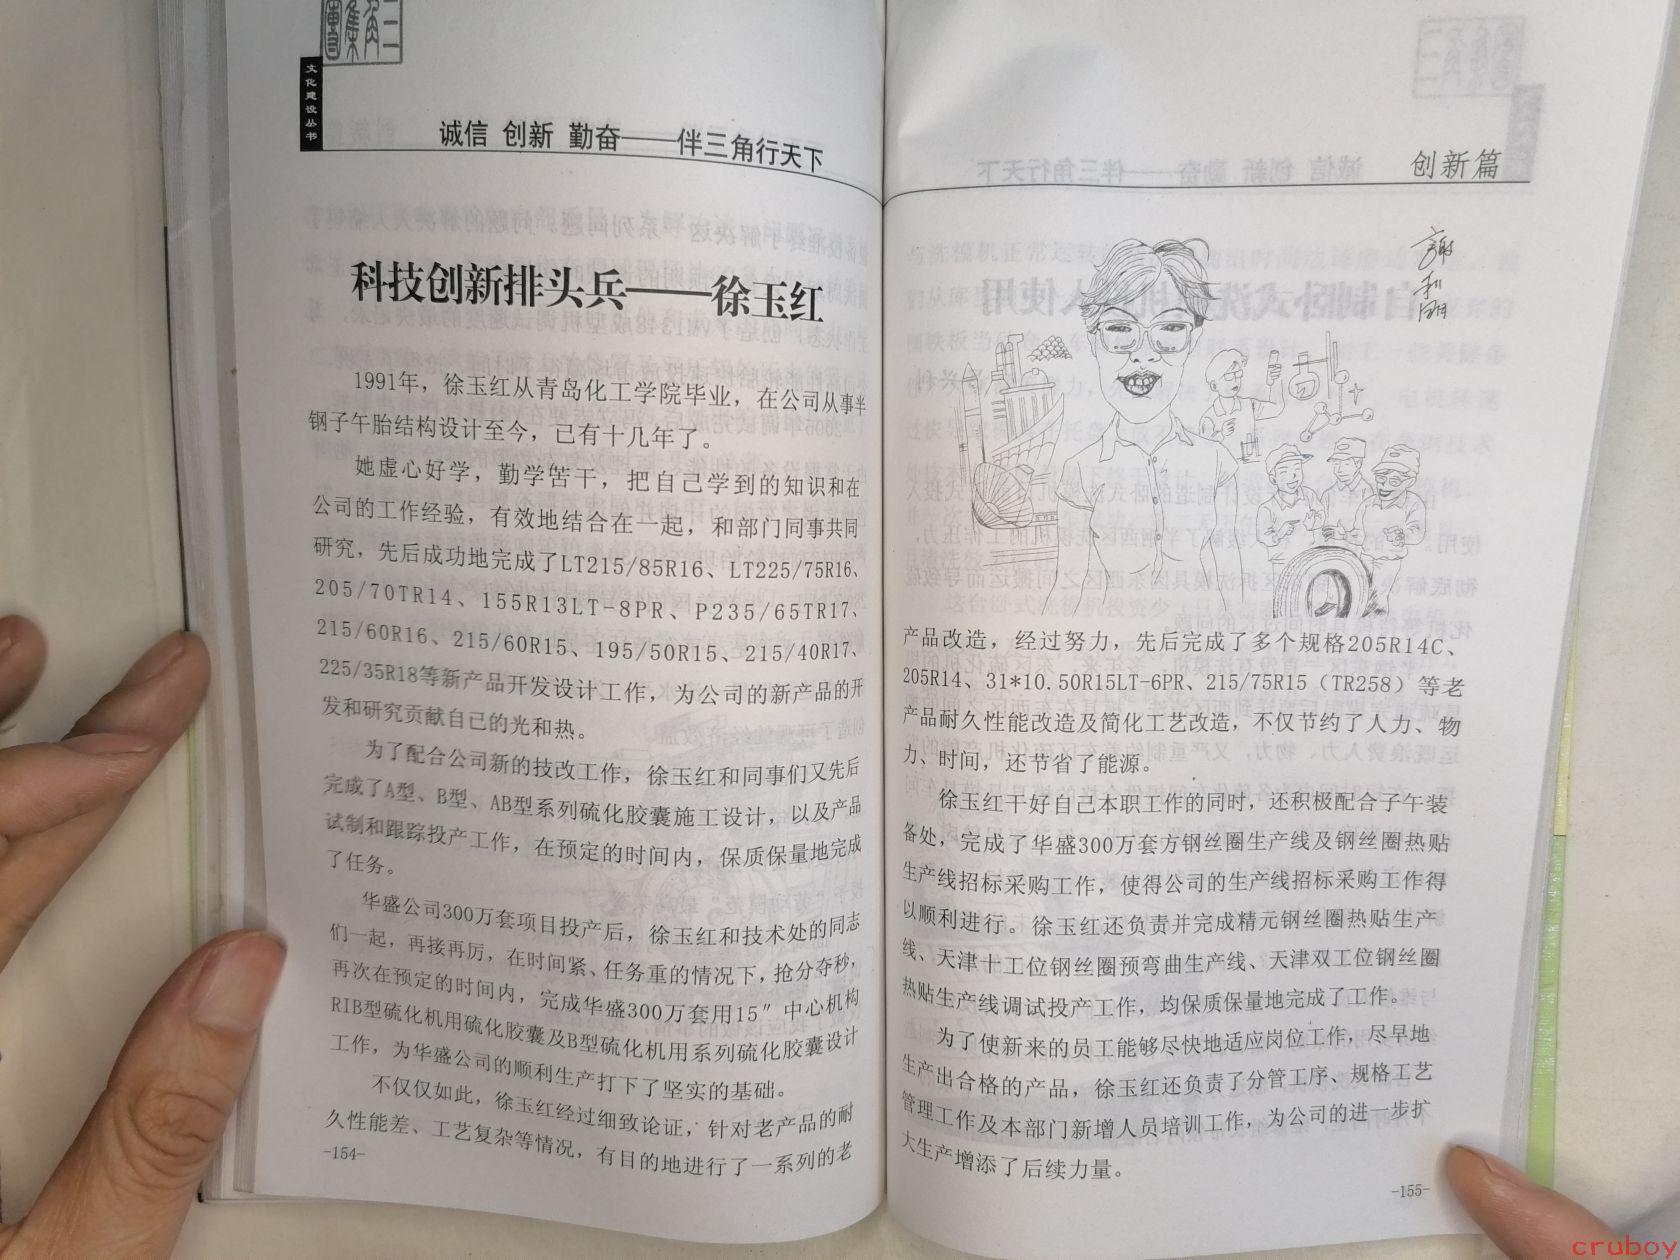 三角集團
文化建设丛书
诚信 创新 勤奋——伴三角行天下
科技创新排头兵——徐玉红
1991年，徐玉红从青岛化工学院毕业，在公司从事半
钢子午胎结构设计至今，已有十几年了。
她虚心好学，勤学苦干，把自己学到的知识和在
公司的工作经验，有效地结合在一起，和部门同事共同
研究，先后成功地完成了LT215/85R16、LT225/75R16、
205/70TR14、155R13LT-8PR、P235/65TR17、
215/60R16、215/60R15、195/50R15、215/40R17、
225/35R18等新产品开发设计工作，为公司的新产品的开
发和研究贡献自己的光和热。
为了配合公司新的技改工作，徐玉红和同事们又先后
完成了A型、B型、AB型系列硫化胶囊施工设计，以及产品
试制和跟踪投产工作，在预定的时间内，保质保量地完成
了任务。
华盛公司300万套项目投产后，徐玉红和技术处的同志
们一起，再接再厉，在时间紧、任务重的情况下，抢分夺秒，
再次在预定的时间内，完成华盛300万套用15″中心机构
RIB型硫化机用硫化胶囊及B型硫化机用系列硫化胶囊设计
工作，为华盛公司的顺利生产打下了坚实的基础。
不仅仅如此，徐玉红经过细致论证，针对老产品的耐
久性能差、工艺复杂等情况，有目的地进行了一系列的老
-154-
创新篇
产品改造，经过努力，先后完成了多个规格205R14C、
205R14、31*10.50R15LT-6PR、215/75R15（TR258）等老
产品耐久性能改造及简化工艺改造，不仅节约了人力、物
力、时间，还节省了能源。
徐玉红干好自己本职工作的同时，还积极配合子午装
备处，完成了华盛300万套方钢丝圈生产线及钢丝圈热贴
生产线招标采购工作，使得公司的生产线招标采购工作得
以顺利进行。徐玉红还负责并完成精元钢丝圈热贴生产
线、天津十工位钢丝圈预弯曲生产线、天津双工位钢丝圈
热贴生产线调试投产工作，均保质保量地完成了工作。
为了使新来的员工能够尽快地适应岗位工作，尽早地
生产出合格的产品，徐玉红还负责了分管工序、规格工艺
管理工作及本部门新增人员培训工作，为公司的进一步扩
大生产增添了后续力量。
-155-
cruboy